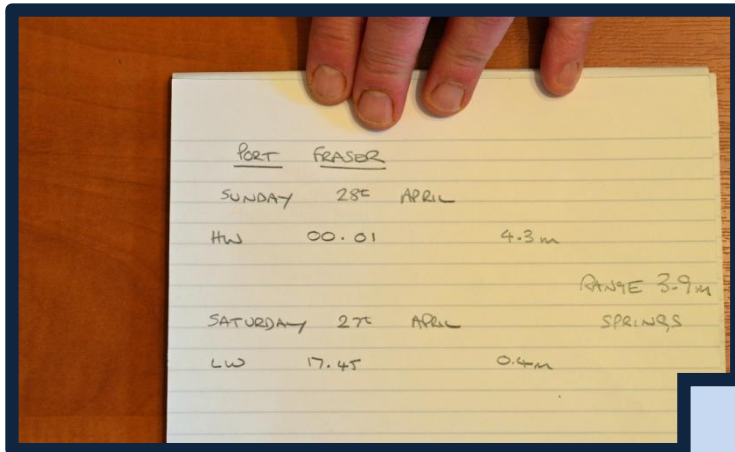 PORT FRASER
SUNDAY 28th APRIL
HW 00.01 4.3m
RANGE 3.9m
SATURDAY 27th APRIL SPRINGS
LW 17.45 0.4m